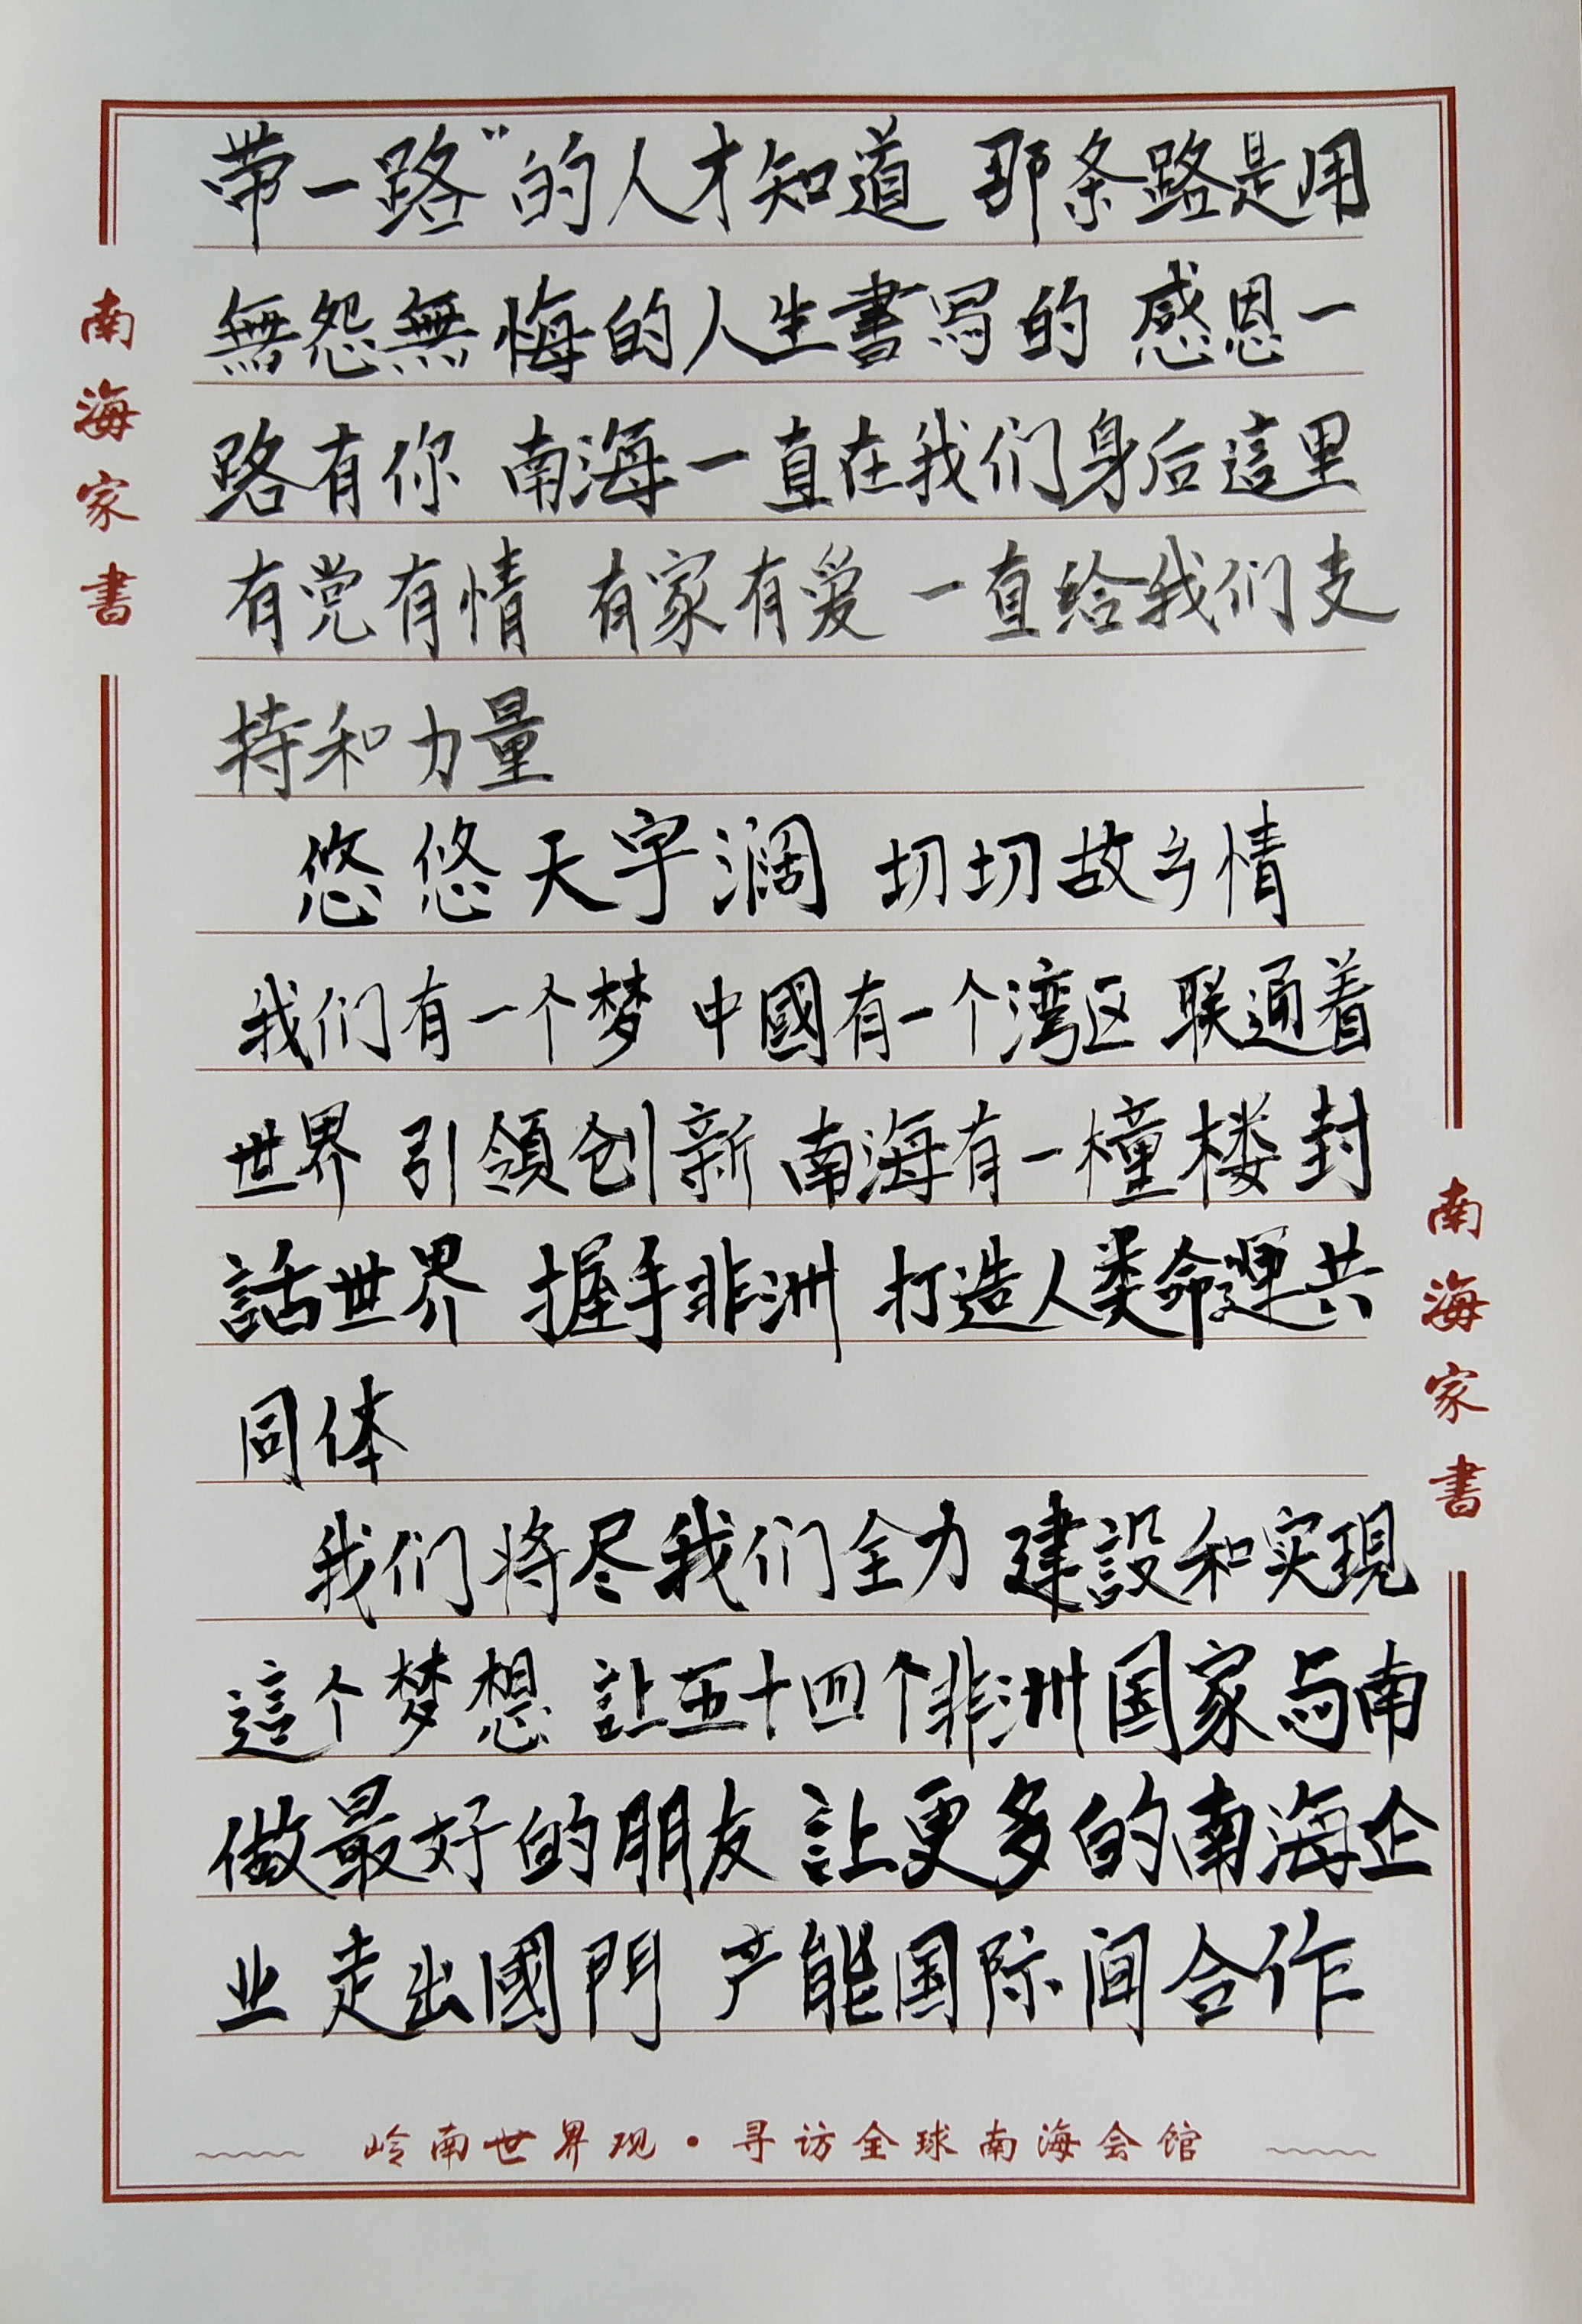 带一路”的人才知道 那条路是用
無怨無悔的人生書写的 感恩一
路有你 南海一直在我们身后這里
有党有情 有家有爱 一直给我们支
持和力量
悠悠天宇濶 切切故乡情
我们有一个梦 中國有一个湾区 联通着
世界 引領创新 南海有一橦楼封
話世界 握手非洲 打造人类命運共
同体
我们将尽我们全力 建設和实現
這个梦想 让五十四个非洲国家与南
做最好的朋友 让更多的南海企
业 走出國門 产能国际间合作
南海家書
南海家書
岭南世界观·寻访全球南海会馆